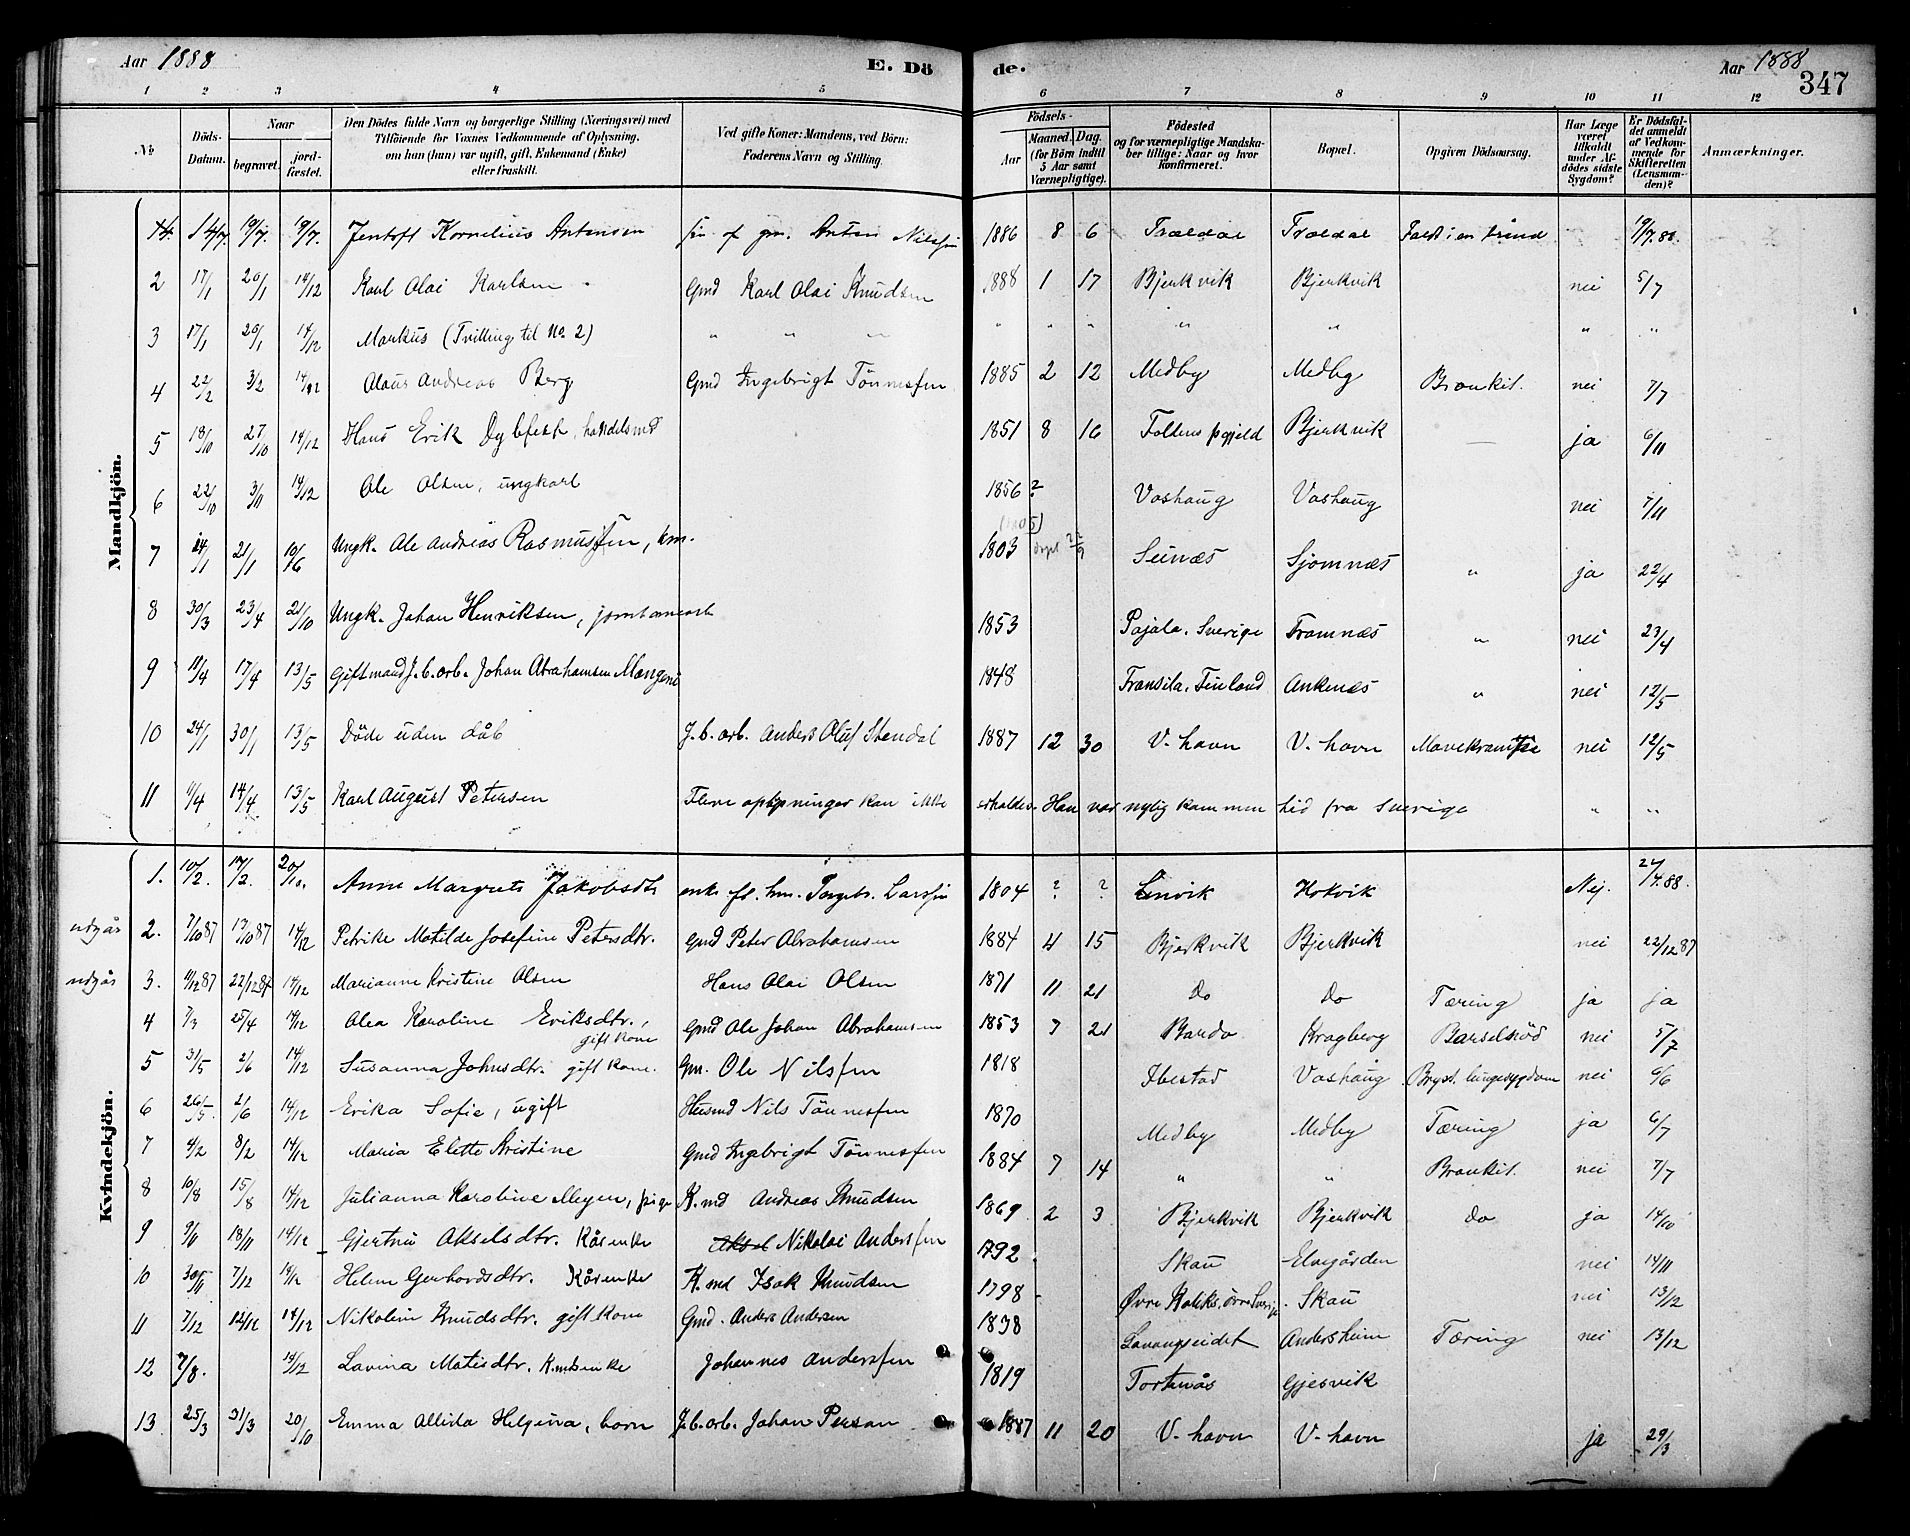 Aar 1888 E. Dö de. Aar 1888
347
1 2 3 4 5 6 7 8 9 10 11 12
No
Döds-Datum.
Naar begravet. jord-fæstet.
Den Dödes fulde Navn og borgerlige Stilling (Næringsvei) med Tilföiende for Voxnes Vedkommende af Oplysning, om hun (hun) var ugift, gift, Enkemand (Enke) eller fraskilt.
Ved gifte Koner: Mandens, ved Börn: Faderens Navn og Stilling.
Födsels- Aar Maaned. Dag. (for Börn indtil 5 Aar samt Værnepligtige).
Födested og for værnepligtige Mandska-ber tillige: Naar og hvor konfirmeret.
Bopæl.
Opgiven Dödsaarsag.
Har Læge været tilkaldt under Af-dödes sidste Sygdom?
Er Dödsfal-det anmeldt af Vedkom-mende for Skifteretten (Lensman-den)?
Anmærkninger.
Mandkjön.
14/7. 19/7. 19/7. Jentoft Kornelius Antonsen sön af gm. Anton Nilssen 1886 8 6 Traldal Traldal Faldt i en brönd 19/7.88.
2 17/1 20/1 14/12 Karl Olai Karlsen Gmd Karl Olai Knudsen 1888 1 17 Bjerkvik Bjerkvik nei 5/7
3 17/1 20/1 14/12 Markus (Tvilling til No. 2) " " " " " " " " " "
4 22/2 3/2 14/12 Olaus Andreas Berg Gmd Ingebrigt Tönnesfen 1885 2 12 Medby Medby Bronkit. nei 7/7
5 18/10 27/10 14/12 Hans Erik Dybfest, handelsmd 1851 8 16 Foldens pgjeld Bjerkvik — ja 6/11
6 22/10 3/11 14/12 Ole Olsen, ungkarl 1856 ? Vashaug Vashaug nei 7/11
7 14/1 21/1 10/6 Ungk. Ole Andreas Rasmusfen, km. 1803 (1805) döpt 22/9 Seinæs Sjomnæs " ja 22/4
8 30/3 23/4 21/10 Ungk. Johan Henriksen, jernbanearb 1853 Pajala. Sverige Framnæs " nei 23/4
9 11/4 17/4 13/5 Giftmand J.b.arb. Johan Abrahamsen Mangeni 1848 Fransila. Finland Ankenæs " nei 12/5
10 24/1 30/1 13/5 Döde uden dåb J.b.arb. Anders Oluf Stendal 1887 12 30 V. havn V. havn Mavekrampe nei 12/5
11 11/4 14/4 13/5 Karl August Petersen Flere oplysninger kan ikke erholdes. Han var nylig kommen hid fra Sverige " "
Kvindekjön.
1. 10/2. 17/2. 20/10. Anne Margrete Jakobsdtr enke ef. hm. Ingebr. Larssen 1804 ? ? Lenvik Hokvik Nej. 24/7.88.
udgår 2. 7/10 87 17/10 87 14/12 Petrike Matilde Josefine Petersdtr. Gmd Peter Abrahamsen 1884 4 15 Bjerkvik Bjerkvik nei 22/12 87
udgår 3. 11/12 87 22/12 87 14/12 Marianne Kristine Olsen Hans Olai Olsen 1871 11 21 Do Do Tæring ja ja
4 7/3 25/4 14/12 Olea Karoline Eriksdtr., gift kone Gmd Ole Johan Abrahamsen 1853 7 21 Bardo Kragberg Barselnöd nei 5/7
5 31/5 2/6 14/12 Susanna Johnsdtr. gift kone. Gm. Ole Nilsfen 1818 Ibestad Vashaug Bryst. lungesygdom nei 6/6
6 26/5. 2/6 14/12 Erika Sofie, ugift Husmd Nils Tönnesfen 1870 Medby Medby Tæring ja 6/7
7 4/2 8/2 14/12 Maria Elette Kristine Gmd Ingebrigt Tönnesfen 1884 7 14 " " Bronkit. nei 7/7
8 10/8 15/8 14/12 Julianna Karoline Meyer, pige K.md Andreas Knudsen 1869 2 3 Bjerkvik Bjerkvik do ja 14/10
9 18/11 14/12 Gjertru Akselsdtr. Kårenke Aksel Nikolai Andersfen 1792 Skau Elvegården nei 14/11
10 30/11 7/12 14/12 Helene Gerhardsdtr. Kårenke K.md Isak Knudsen 1798 Øvre Kaliks, övre Sverige Skau nei 13/12
11 7/12 12/12 14/12 Nikoline Knudsdtr. gift kone Gmd. Anders Andersen 1838 Lavangseidet Andersheim Tæring nei 13/12
12 7/8. 14/12 Lavina Matisdtr. K.mdsenke Johannes Andersfen 1819 Tortnås Gjesvik
13 25/3 31/3 20/10 Emma Allida Helgina, barn J.b.arb. Johan Persan 1887 11 20 V. havn V. havn ja 29/3